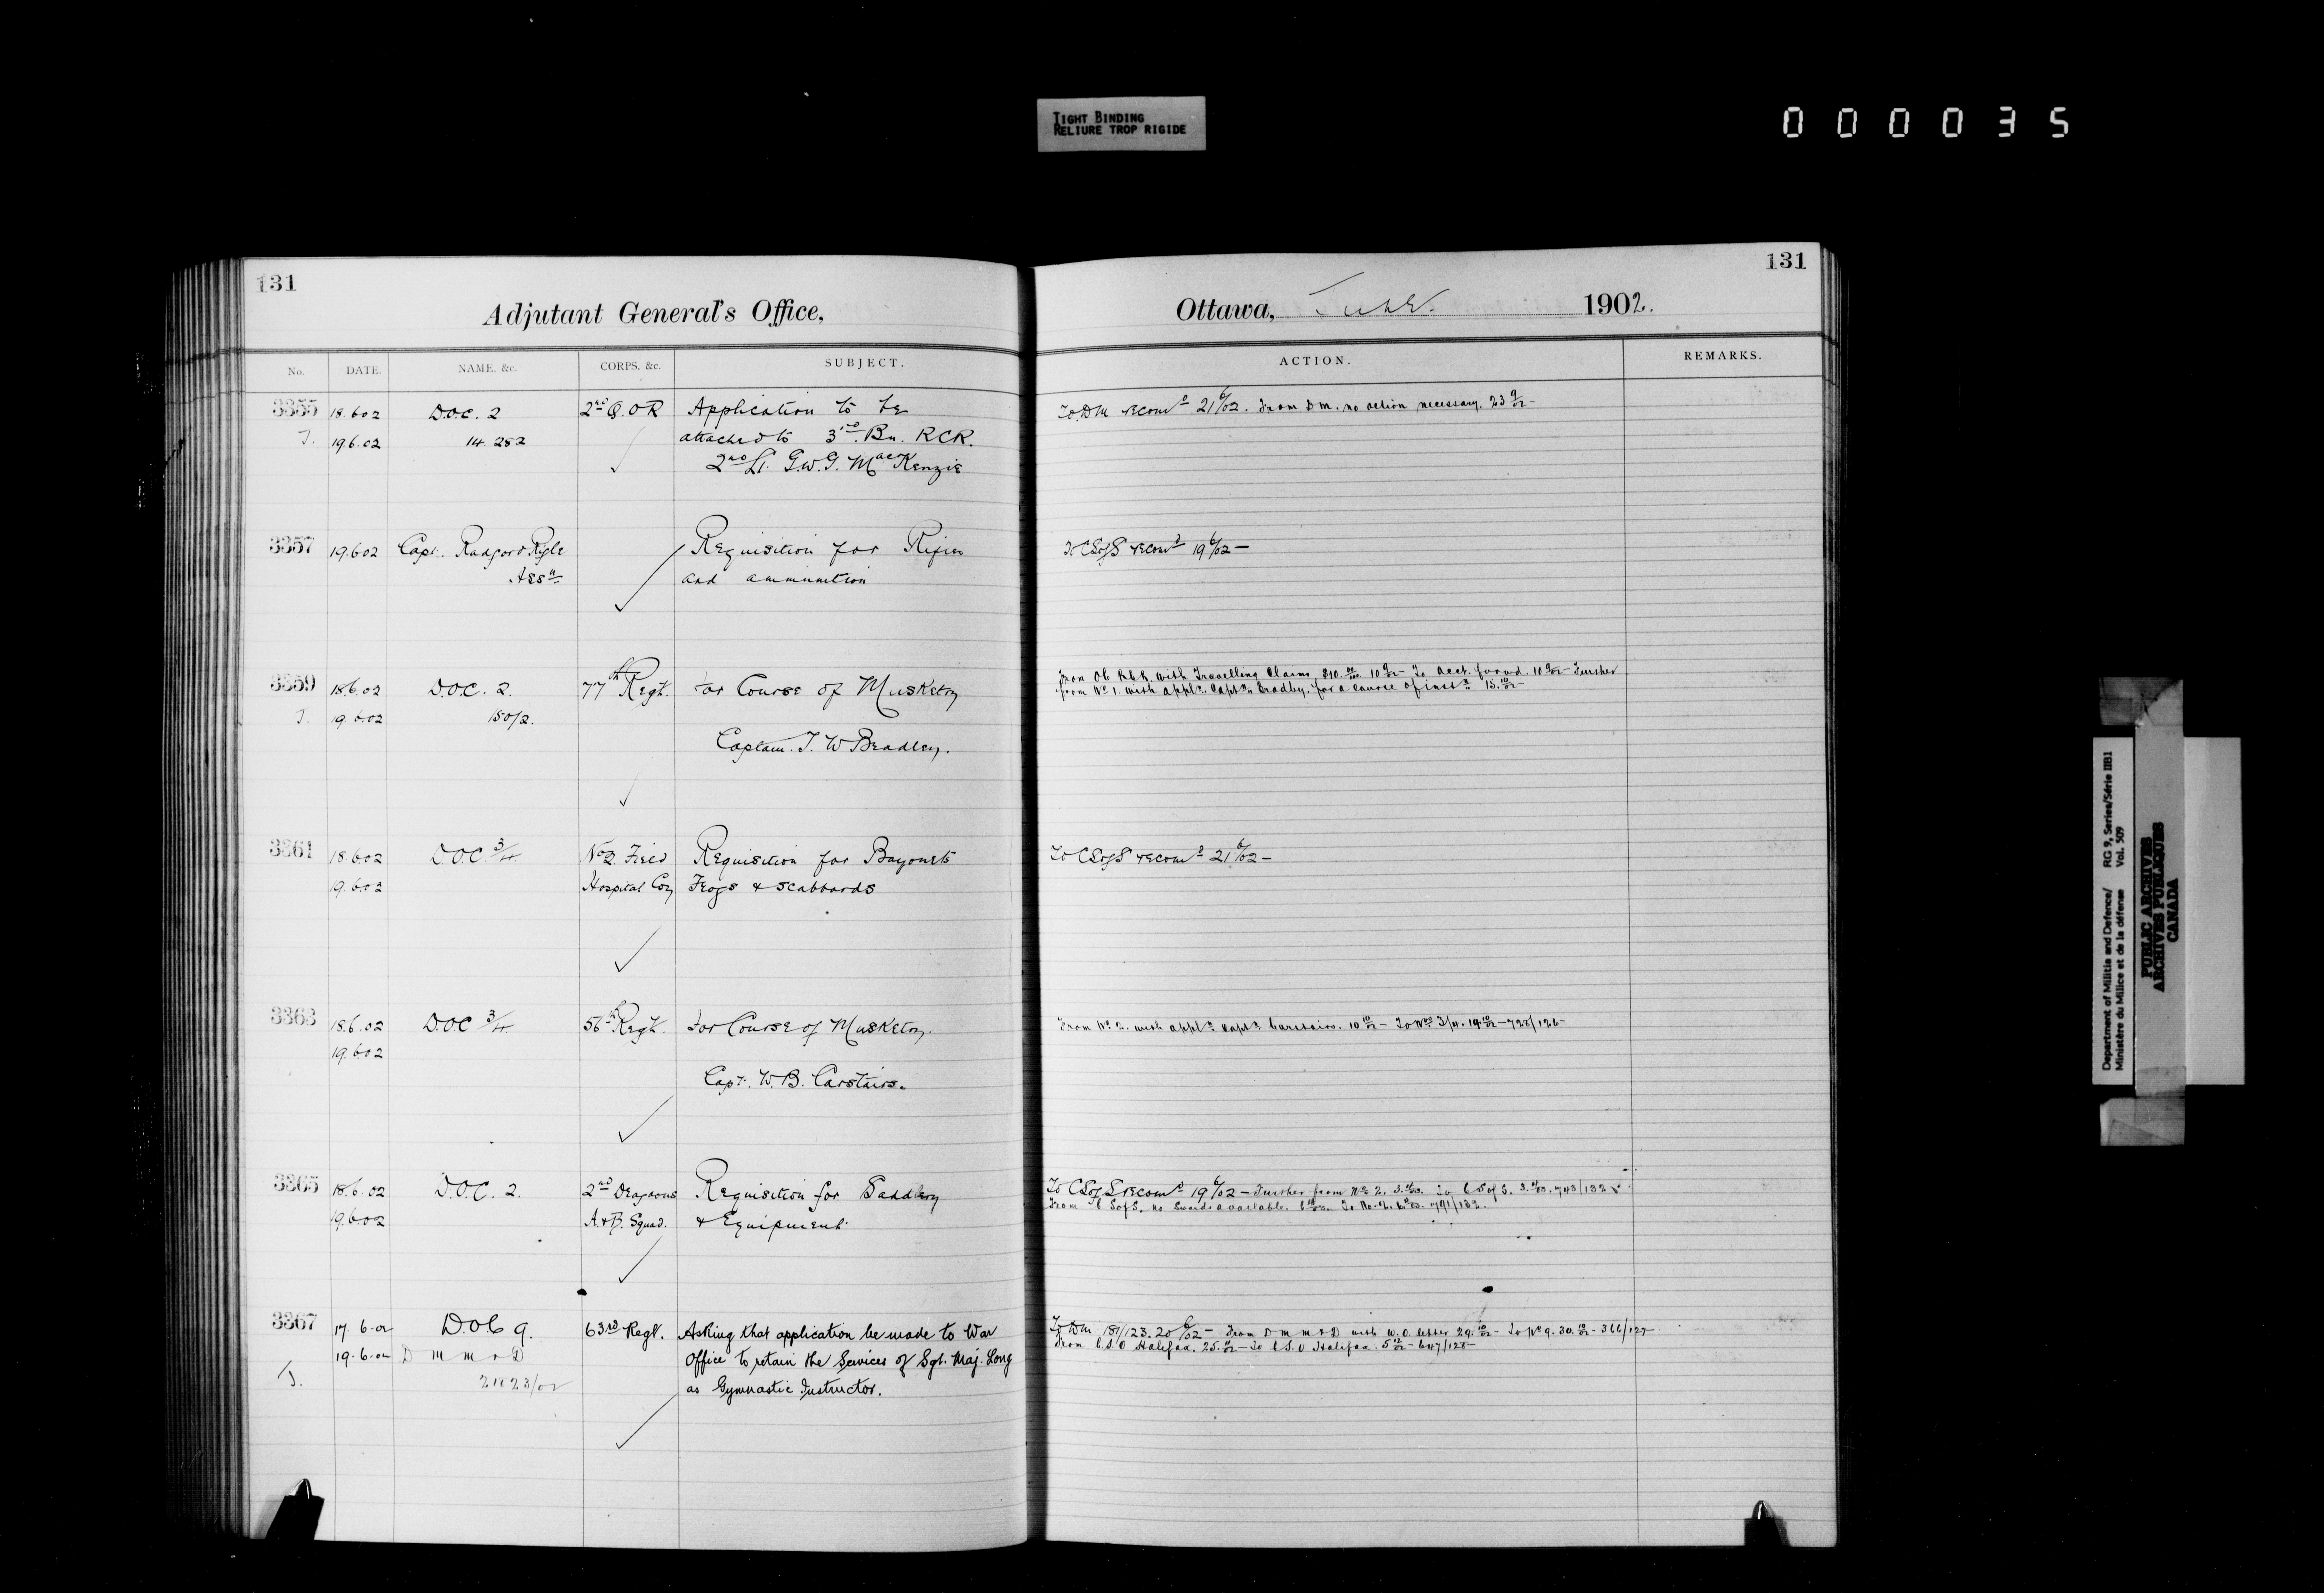 TIGHT BINDING
RELIURE TROP RIGIDE
000035
131
Adjutant General's Office,
No. DATE. NAME. &c. CORPS. &c. SUBJECT.
3355 18.6.02 D.O.C. 2 2nd Q.O.R Application to be
T. 19.6.02 14.282 attached to 3rd. Bn. RCR.
2nd Lt. G.W.G. MacKenzie
3357 19.6.02 Capt. Rifle Requisition for Rifles
Assn. and ammunition
3359 18.6.02 D.O.C. 2. 77th Regt. For Course of Musketry
T. 19.6.02 150/2.
Captain. T. W Bradley.
3361 18.6.02 D.O.C. 3/4. No 2. Field Requisition for Bayonets
19.6.02 Hospital Coy Frogs & Scabbards
3363 18.6.02 D.O.C 3/4. 56th Regt. For Course of Musketry.
19.6.02
Capt. W.B. Carstairs.
3365 18.6.02 D.O.C. 2. 2nd Dragoons Requisition for Saddlery
19.6.02 A.&B. Squad. & Equipment
3367 17.6.02 D.O.C 9. 63rd Regt. Asking that application be made to War
19.6.02 D M M & D Office to retain the Services of Sgt. Maj. Long
T. as Gymnastic Instructor.
131
Ottawa, June 1902.
ACTION. REMARKS.
To DM recomd 21 6/02. From D M. no action necessary. 23
To CSofS recomd 19 6/02 –
From O.C. R.C.R. with Travelling Claims $10. To Acct. forwd. Further
from No 1. with appln. Captn. Bradley, for a course of instn. 15.
To CSofS recomd 21 6/02 –
From No 2. with appln. Captn. Carstairs. 10 10/02 – To Nos 3/4. 14 10/02 – 728/126 –
To CSofS recomd 19 6/02 – Further from No 2. To C S of S. 743/132
From C S of S. no Swords available. To No. 2. 791/132.
To DM 181/123. 20 6/02 – From D M M & D with W.O. letter 29. 10/02 – To No 9. 30. 10/02 – 366/127
From C.S.O Halifax. 25. – To C.S.O Halifax. 5 – 647/128 –
Department of Militia and Defence/ RG 9, Series/Série IIB1
Ministère du Milice et de la défense Vol. 509
PUBLIC ARCHIVES
ARCHIVES PUBLIQUES
CANADA